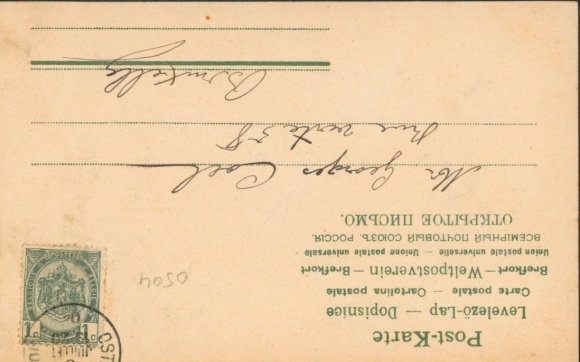 Post-Karte
Levelező-Lap — Dopisnice
Carte postale — Cartolina postale
Brefkort — Weltpostverein — Brefkort
Union postale universelle — Unione postale universale
ВСЕМІРНЫЙ ПОЧТОВЫЙ СОЮЗЪ. РОССІЯ.
ОТКРЫТОЕ ПИСЬМО.
Mr Georges
rue verte 58
Bruxelles
1c 1c
OST
0504